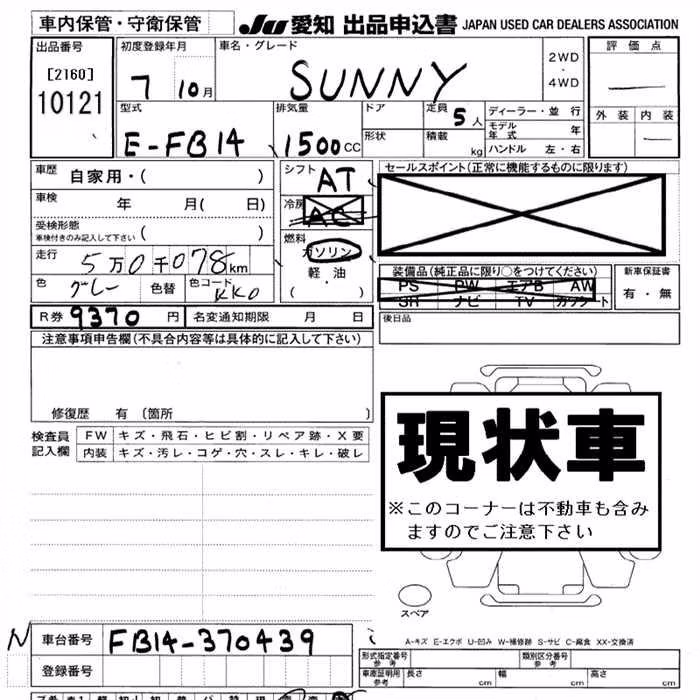 車内保管・守衛保管 JU 愛知 出品申込書 JAPAN USED CAR DEALERS ASSOCIATION
出品番号 初度登録年月 車名・グレード 評価点
[2160] 7 10月 SUNNY 2WD・4WD
10121 外装 内装
型式 排気量 ドア 定員 5人 ディーラー・並行
E-FB14 1500CC 形状 積載 kg モデル年式 年
ハンドル 左・右
車歴 自家用・( ) シフト AT セールスポイント(正常に機能するものに限ります)
車検 年 月( 日) 冷房 AC
受検形態 燃料
車検付きのみ記入して下さい ( ) ガソリン
走行 5万0千078km 軽油 装備品(純正品に限り○をつけてください) 新車保証書
色 グレー 色替 色コード KK0 ・ PS PW エアB AW 有・無
( ) SR ナビ TV カワシート
R券 9370円 名変通知期限 月 日 後日品
注意事項申告欄(不具合内容等は具体的に記入して下さい)
修復歴 有 〔箇所 〕
検査員 FW キズ・飛石・ヒビ割・リペア跡・X要
記入欄 内装 キズ・汚レ・コゲ・穴・スレ・キレ・破レ
現状車
※このコーナーは不動車も含み
ますのでご注意下さい
スペア
N 車台番号 FB14-370439 A-キズ E-エクボ U-凹み W-補修跡 S-サビ C-腐食 XX-交換済
登録番号 形式指定番号 参考 類別区分番号 参考
車庫証明用 参考 長さ cm 幅 cm 高さ cm